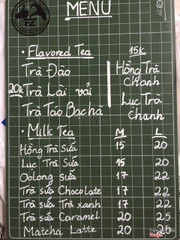 MENU
Flavored Tea 15K
Trà Đào Hồng Trà Chanh
20K Trà Lài vải
Lục Trà chanh
Trà Táo Bạc hà
Milk Tea M L
Hồng Trà Sữa 15 20
Lục Trà Sữa 15 20
Oolong Sữa 17 22
Trà sữa Chocolate 17 22
Trà sữa Trà xanh 17 22
Trà sữa Caramel 20 25
Matcha Latte 20 26